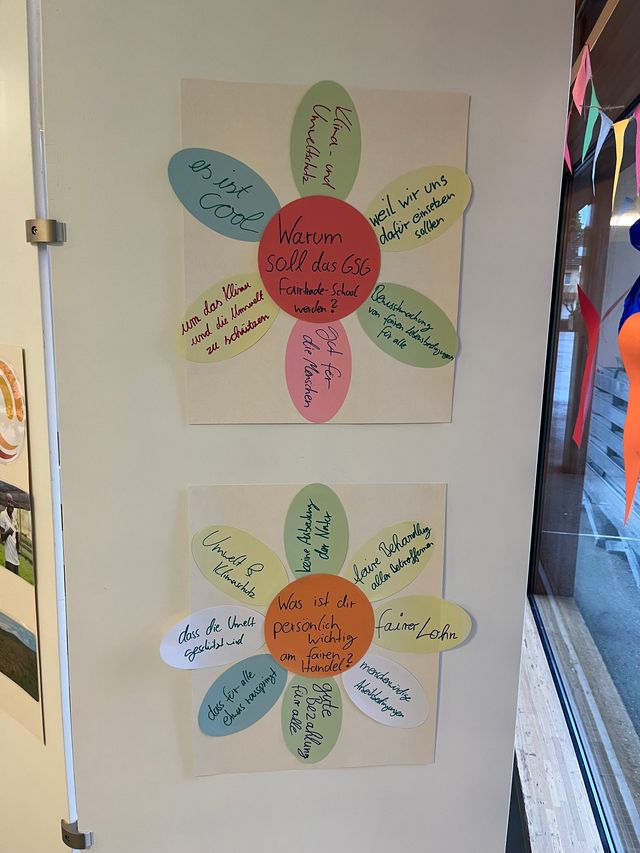 Warum
soll das GSG
Fairtrade-School
werden?
Klima- und
Umweltschutz
weil wir uns
dafür einsetzen
sollten
Bewusstmachung
von fairen Lebensbedingungen
für alle
Gut für
die Menschen
um das Klima
und die Umwelt
zu schützen
es ist
cool
Was ist dir
persönlich
wichtig
am fairen
Handel?
keine Ausbeutung
der Natur
faire Behandlung
aller Betroffenen
fairer Lohn
menschenwürdige
Arbeitsbedingungen
gute
Bezahlung
für alle
dass für alle
etwas rausspringt
dass die Umwelt
geschützt wird
Umwelt &
Klimaschutz